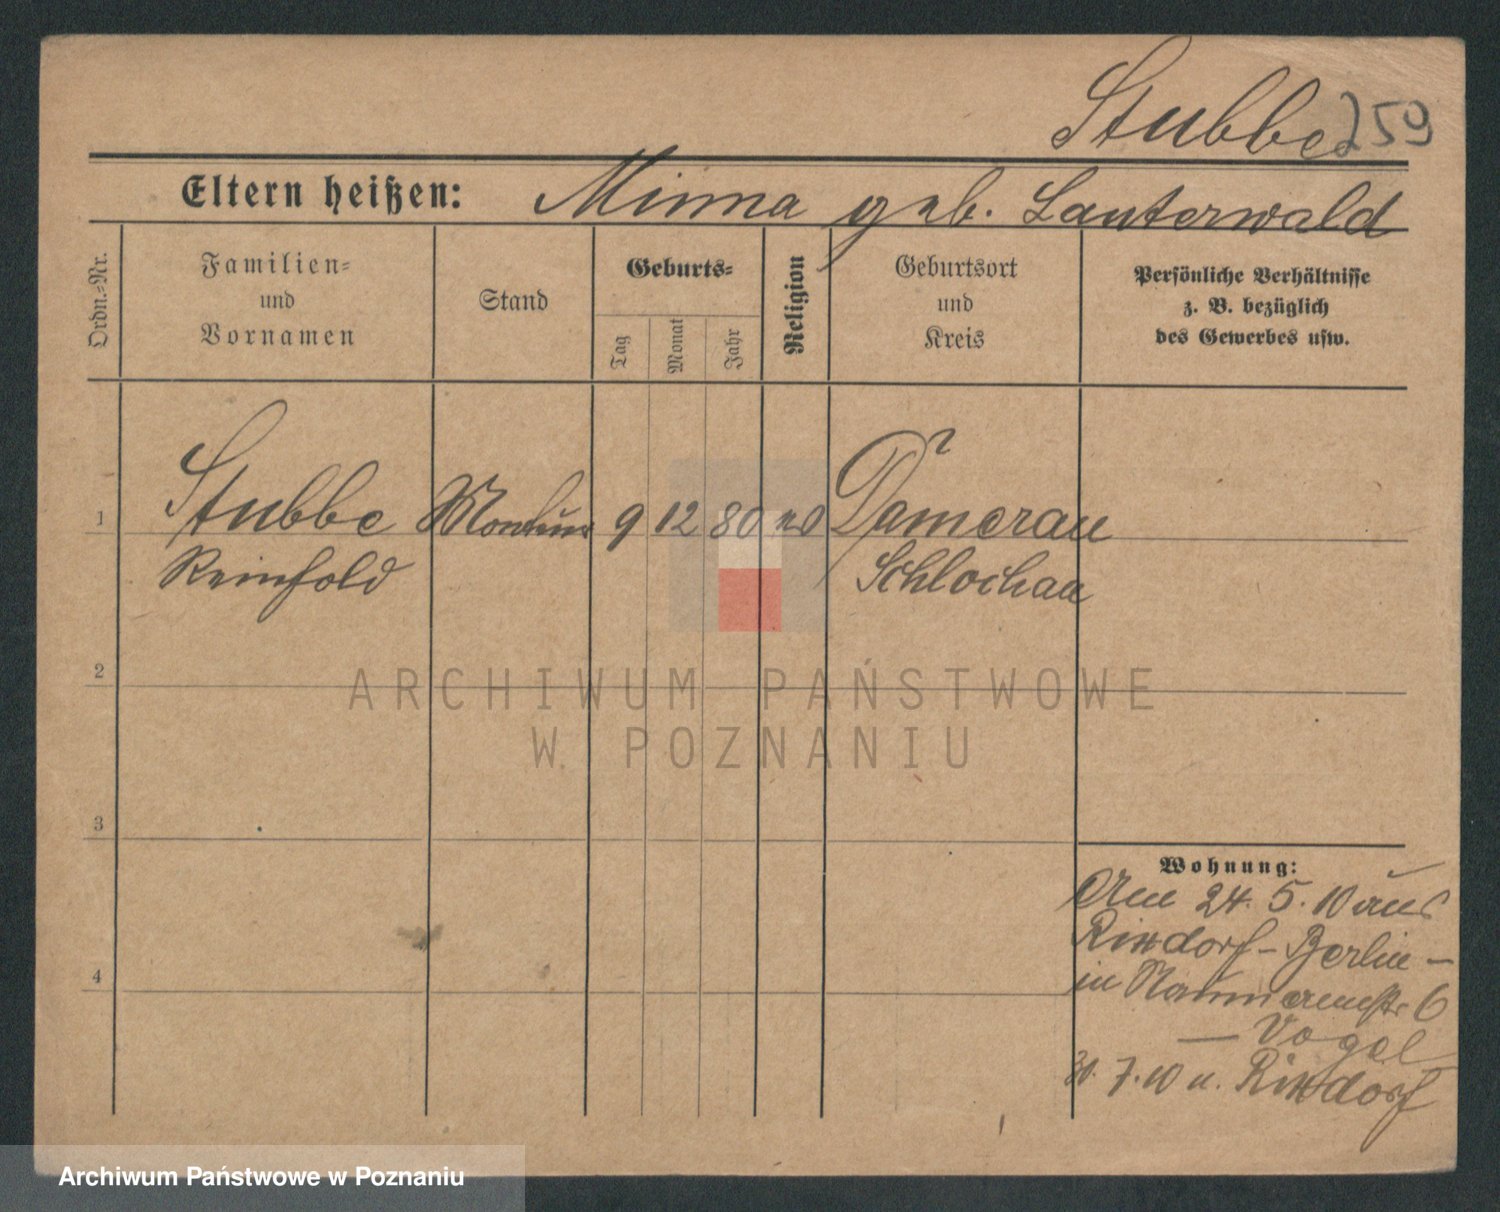 Stubbe 259
Eltern heißen: Minna geb. Lauterwald
Ordn.-Nr.
Familien-
und
Vornamen
Stand
Geburts-
Tag
Monat
Jahr
Religion
Geburtsort
und
Kreis
Persönliche Verhältnisse
z. B. bezüglich
des Gewerbes usw.
1 Stubbe Monteur 9 12 80 Damerau
Reinhold Schlochau
2
3
4
ARCHIWUM PAŃSTWOWE
W POZNANIU
Wohnung:
Am 24. 5. 10 aus
Rixdorf-Berlin-
in 6
— Vogel
30. 7. 10 n. Rixdorf
Archiwum Państwowe w Poznaniu